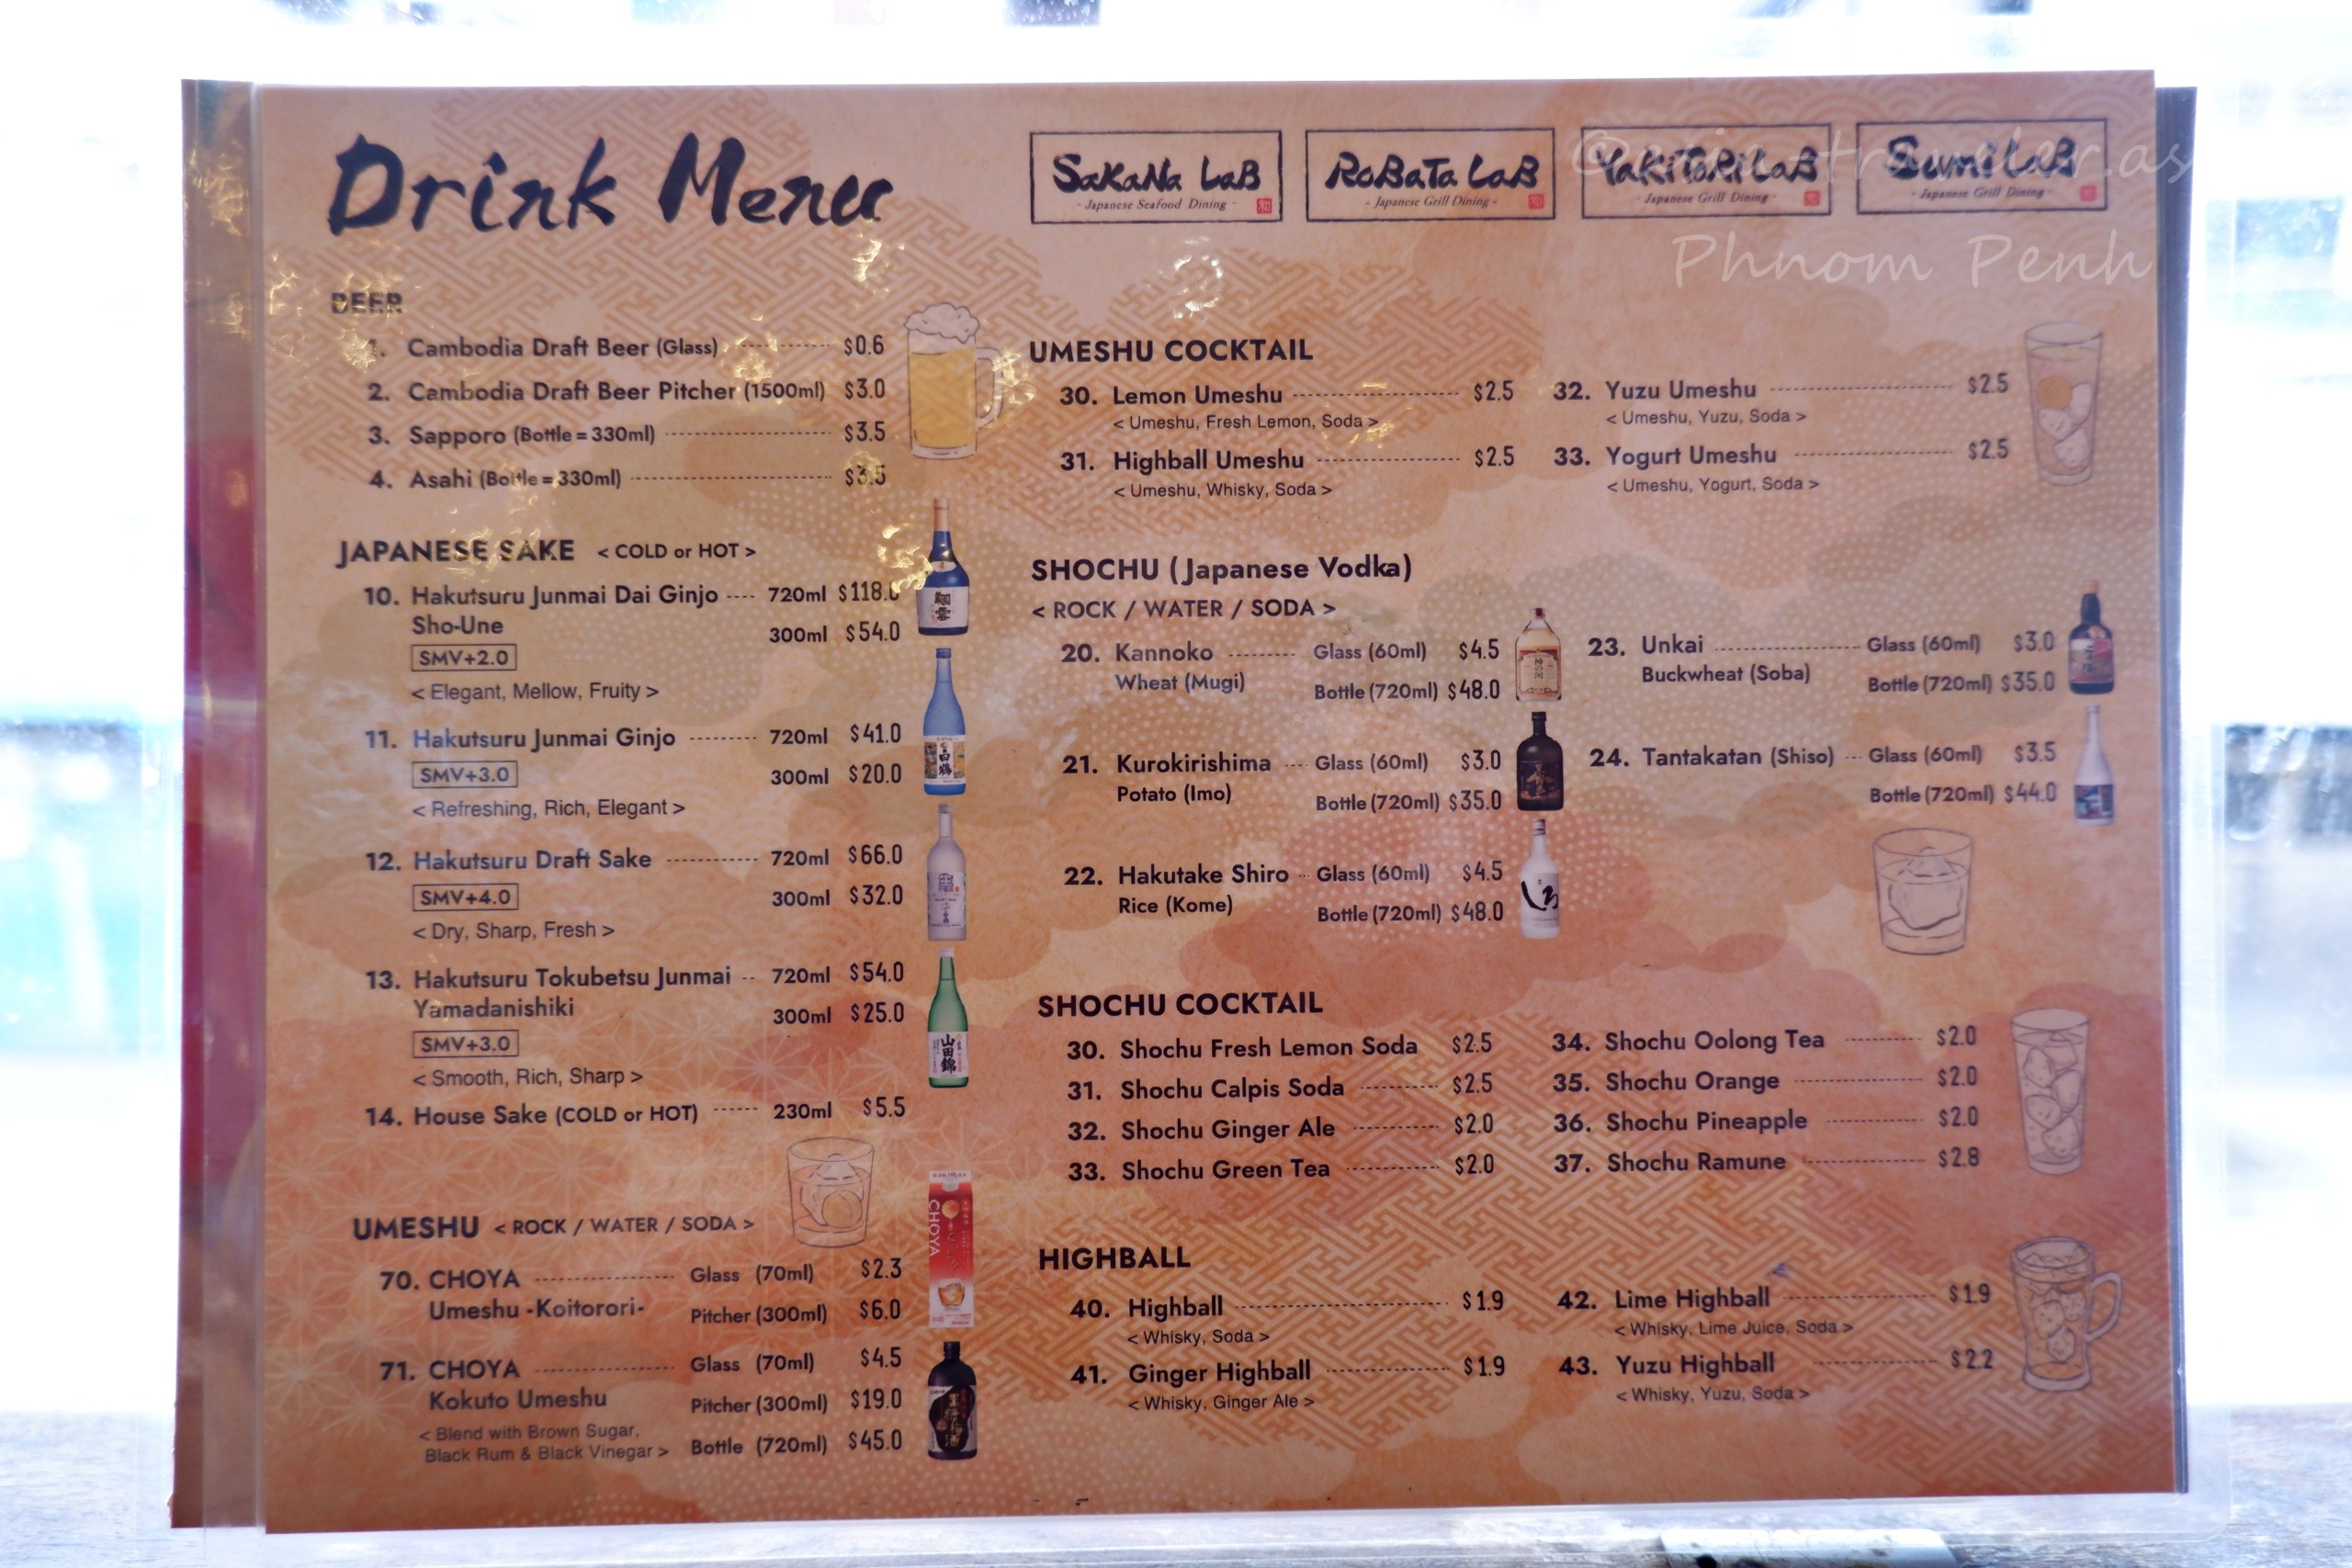 Drink Menu
SaKaNa LaB
- Japanese Seafood Dining -
RoBaTa LaB
- Japanese Grill Dining -
YaKiToRi LaB
- Japanese Grill Dining -
Sumi LaB
- Japanese Grill Dining -
Phnom Penh
BEER
1. Cambodia Draft Beer (Glass) $0.6
2. Cambodia Draft Beer Pitcher (1500ml) $3.0
3. Sapporo (Bottle = 330ml) $3.5
4. Asahi (Bottle = 330ml) $3.5
JAPANESE SAKE < COLD or HOT >
10. Hakutsuru Junmai Dai Ginjo 720ml $118.0
Sho-Une 300ml $54.0
SMV+2.0
< Elegant, Mellow, Fruity >
11. Hakutsuru Junmai Ginjo 720ml $41.0
SMV+3.0 300ml $20.0
< Refreshing, Rich, Elegant >
12. Hakutsuru Draft Sake 720ml $66.0
SMV+4.0 300ml $32.0
< Dry, Sharp, Fresh >
13. Hakutsuru Tokubetsu Junmai 720ml $54.0
Yamadanishiki 300ml $25.0
SMV+3.0
< Smooth, Rich, Sharp >
14. House Sake (COLD or HOT) 230ml $5.5
白鶴
山田錦
UMESHU < ROCK / WATER / SODA >
70. CHOYA Glass (70ml) $2.3
Umeshu -Koitorori- Pitcher (300ml) $6.0
71. CHOYA Glass (70ml) $4.5
Kokuto Umeshu Pitcher (300ml) $19.0
< Blend with Brown Sugar,
Black Rum & Black Vinegar > Bottle (720ml) $45.0
CHOYA
UMESHU COCKTAIL
30. Lemon Umeshu $2.5
< Umeshu, Fresh Lemon, Soda >
31. Highball Umeshu $2.5
< Umeshu, Whisky, Soda >
32. Yuzu Umeshu $2.5
< Umeshu, Yuzu, Soda >
33. Yogurt Umeshu $2.5
< Umeshu, Yogurt, Soda >
SHOCHU (Japanese Vodka)
< ROCK / WATER / SODA >
20. Kannoko Glass (60ml) $4.5
Wheat (Mugi) Bottle (720ml) $48.0
21. Kurokirishima Glass (60ml) $3.0
Potato (Imo) Bottle (720ml) $35.0
22. Hakutake Shiro Glass (60ml) $4.5
Rice (Kome) Bottle (720ml) $48.0
しろ
23. Unkai Glass (60ml) $3.0
Buckwheat (Soba) Bottle (720ml) $35.0
24. Tantakatan (Shiso) Glass (60ml) $3.5
Bottle (720ml) $44.0
SHOCHU COCKTAIL
30. Shochu Fresh Lemon Soda $2.5
31. Shochu Calpis Soda $2.5
32. Shochu Ginger Ale $2.0
33. Shochu Green Tea $2.0
34. Shochu Oolong Tea $2.0
35. Shochu Orange $2.0
36. Shochu Pineapple $2.0
37. Shochu Ramune $2.8
HIGHBALL
40. Highball $1.9
< Whisky, Soda >
41. Ginger Highball $1.9
< Whisky, Ginger Ale >
42. Lime Highball $1.9
< Whisky, Lime Juice, Soda >
43. Yuzu Highball $2.2
< Whisky, Yuzu, Soda >